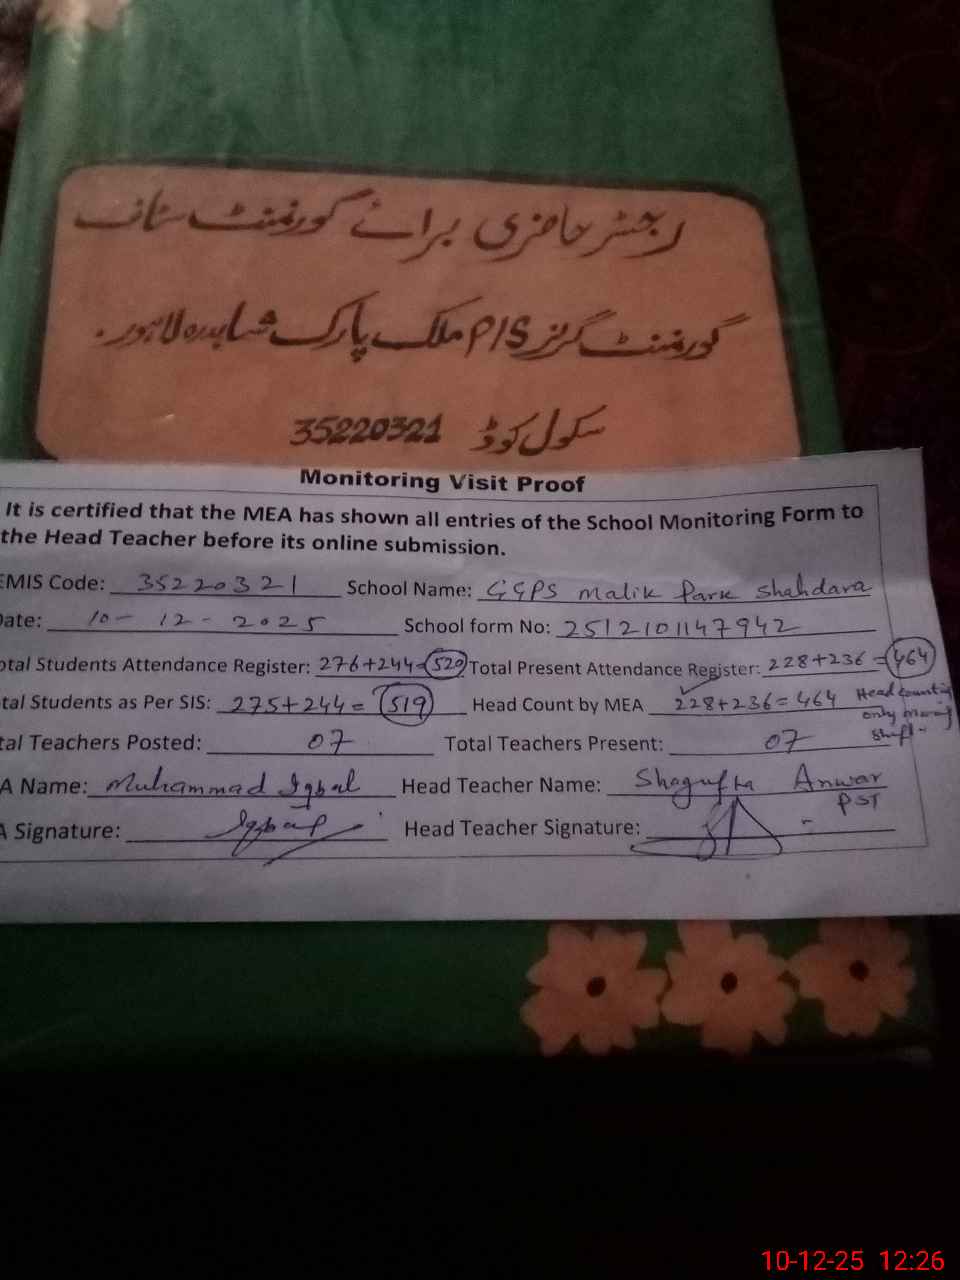 رجسٹر حاضری برائے گورنمنٹ سٹاف
گورنمنٹ گرلز P/S ملک پارک شاہدرہ لاہور.
سکول کوڈ 35220321
Monitoring Visit Proof
It is certified that the MEA has shown all entries of the School Monitoring Form to
the Head Teacher before its online submission.
EMIS Code: 35220321 School Name: GGPS Malik Park Shahdara
Date: 10-12-2025 School form No: 2512101147942
otal Students Attendance Register: 276+244=520 Total Present Attendance Register: 228+236=464
tal Students as Per SIS: 275+244=519 Head Count by MEA 228+236=464 Head counting
only
tal Teachers Posted: 07 Total Teachers Present: 07 shift
A Name: Muhammad Iqbal Head Teacher Name: Shagufta Anwar
PST
A Signature: Iqbal Head Teacher Signature:
10-12-25 12:26